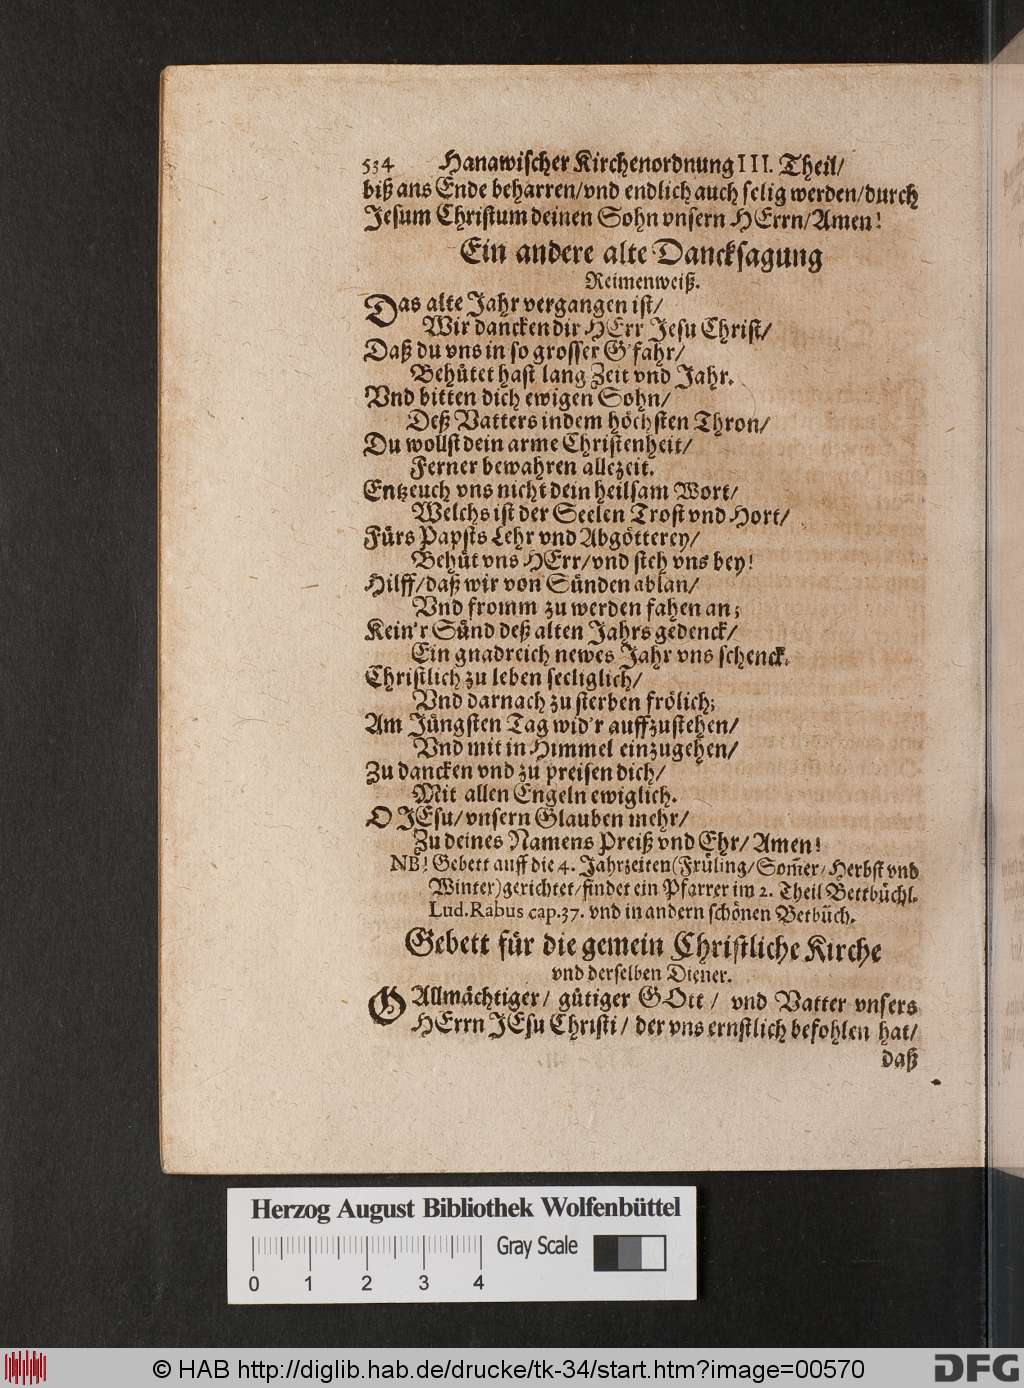 534 Hanawischer Kirchenordnung III. Theil/
biß ans Ende beharren/vnd endlich auch selig werden/durch
Jesum Christum deinen Sohn vnsern HErrn/Amen!
Ein andere alte Dancksagung
Reimenweiß.
Das alte Jahr vergangen ist/
Wir dancken dir HErr Jesu Christ/
Daß du vns in so grosser G'fahr/
Behütet hast lang Zeit vnd Jahr.
Vnd bitten dich ewigen Sohn/
Deß Vatters in dem höchsten Thron/
Du wollst dein arme Christenheit/
Ferner bewahren allezeit.
Entzeuch vns nicht dein heilsam Wort/
Welchs ist der Seelen Trost vnd Hort/
Fürs Papsts Lehr vnd Abgötterey/
Behüt vns HErr/vnd steh vns bey!
Hilff/daß wir von Sünden ablan/
Vnd fromm zu werden fahen an;
Kein'r Sünd deß alten Jahrs gedenck/
Ein gnadreich newes Jahr vns schenck.
Christlich zu leben seeliglich/
Vnd darnach zu sterben frölich;
Am Jüngsten Tag wid'r auffzustehen/
Vnd mit in Himmel einzugehen/
Zu dancken vnd zu preisen dich/
Mit allen Engeln ewiglich.
O JEsu/vnsern Glauben mehr/
Zu deines Namens Preiß vnd Ehr/Amen!
NB! Gebett auff die 4. Jahrzeiten(Früling/Som̃er/Herbst vnd
Winter)gerichtet/findet ein Pfarrer im 2. Theil Bettbüchl.
Lud. Rabus cap. 37. vnd in andern schönen Betbüch.
Gebett für die gemein Christliche Kirche
vnd derselben Diener.
O Allmächtiger/ gütiger GOtt/ vnd Vatter vnsers
HErrn JEsu Christi/ der vns ernstlich befohlen hat/
daß
Herzog August Bibliothek Wolfenbüttel
Gray Scale
0 1 2 3 4
© HAB http://diglib.hab.de/drucke/tk-34/start.htm?image=00570
DFG